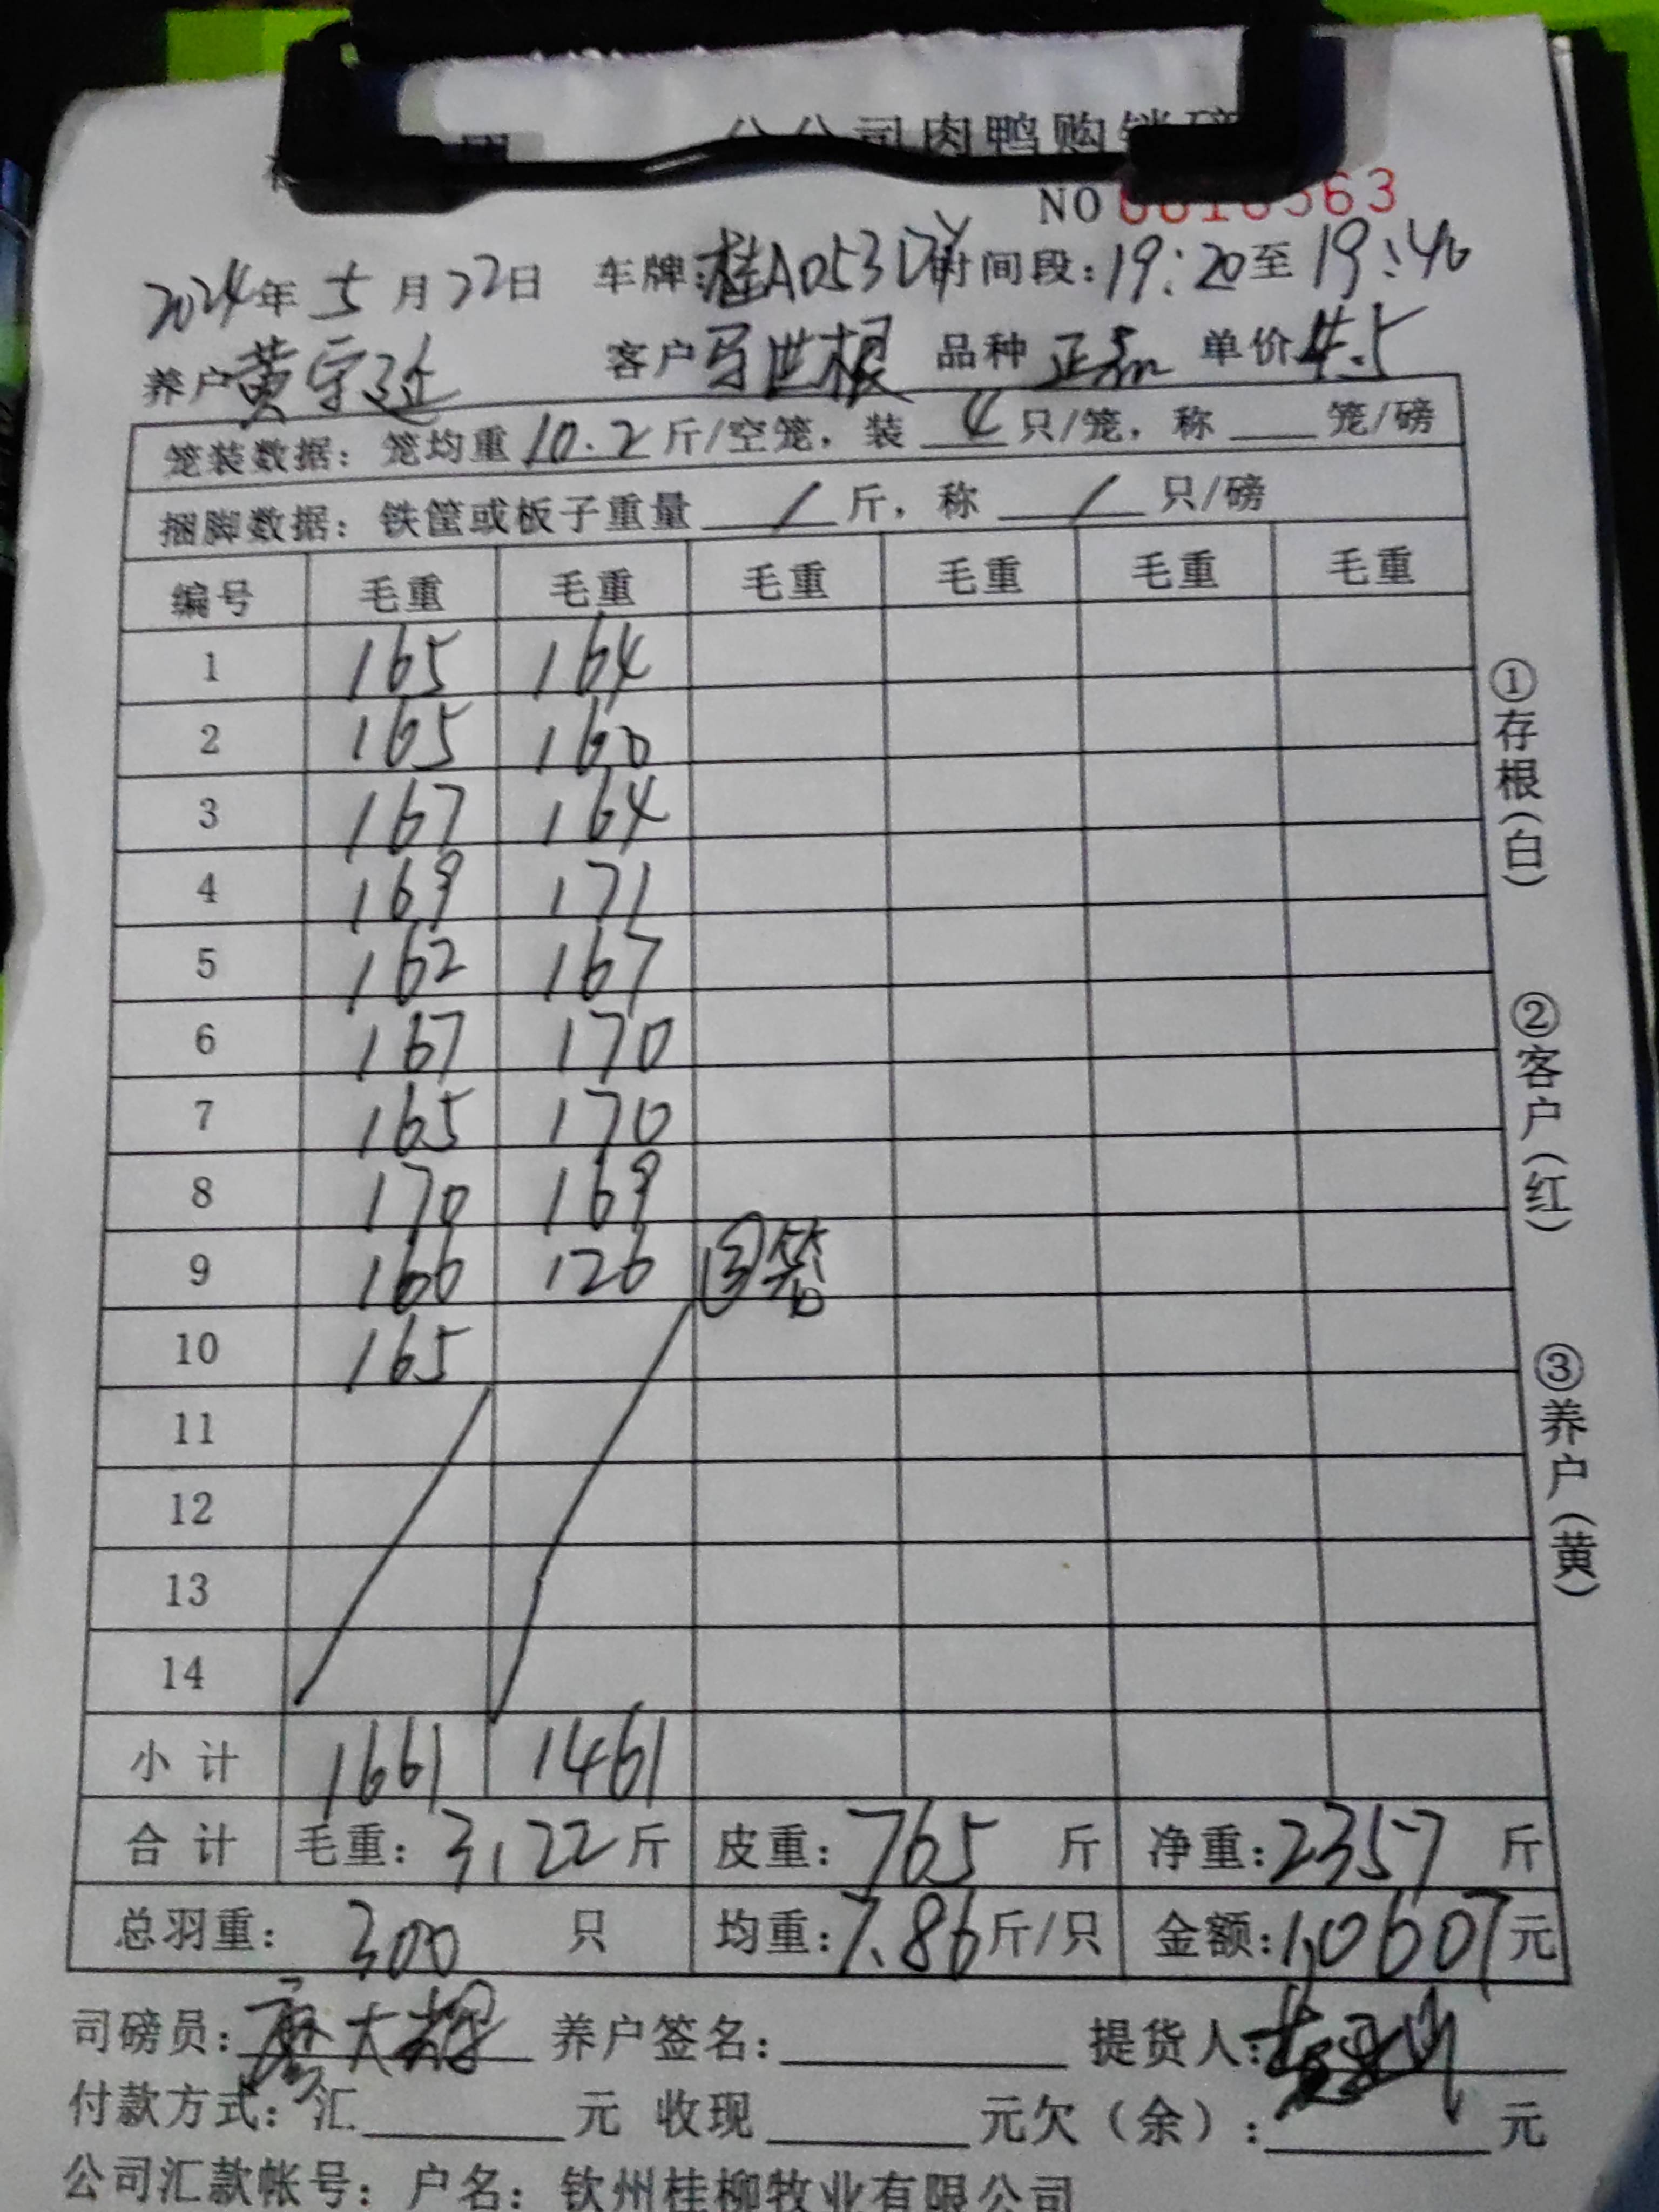 公司肉鸭购销磅
NO 0010363
2024年 5月22日 车牌:桂A053 时间段:19:20至19:46
养户黄宇延 客户 马世根 品种 正 单价4.5
笼装数据: 笼均重10.2斤/空笼, 装 4 只/笼, 称 笼/磅
捆脚数据: 铁筐或板子重量 / 斤, 称 / 只/磅
编号 毛重 毛重 毛重 毛重 毛重 毛重
1 165 164
2 165 160
3 167 164
4 169 171
5 162 167
6 167 170
7 165 170
8 170 169
9 166 126 ③笼
10 165
11
12
13
14
小计 1661 1461
合计 毛重: 3,122斤 皮重: 765 斤 净重:2357 斤
总羽重: 300 只 均重:7.86斤/只 金额:1,0607元
司磅员:廖大 养户签名: 提货人:
付款方式: 汇 元 收现 元欠(余): 元
公司汇款帐号: 户名: 钦州桂柳牧业有限公司
①存根(白) ②客户(红) ③养户(黄)